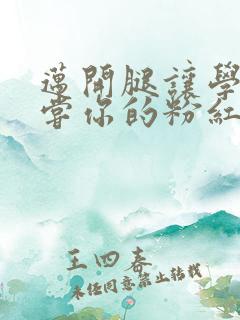 邁開腿讓學
當你的粉紅
王四春
未經同意禁止轉載